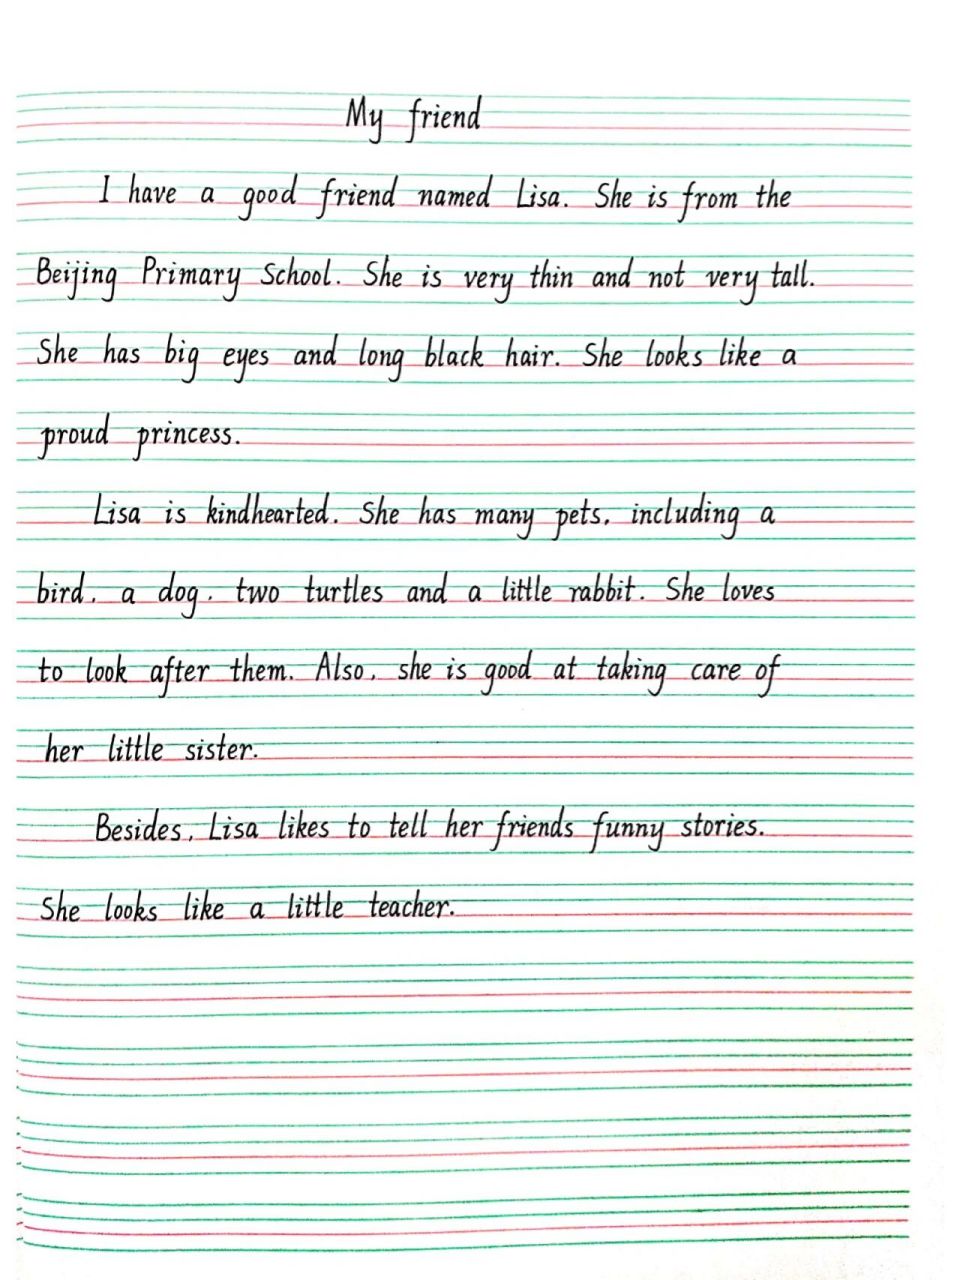 My friend
I have a good friend named Lisa. She is from the
Beijing Primary School. She is very thin and not very tall.
She has big eyes and long black hair. She looks like a
proud princess.
Lisa is kindhearted. She has many pets, including a
bird, a dog, two turtles and a little rabbit. She loves
to look after them. Also, she is good at taking care of
her little sister.
Besides, Lisa likes to tell her friends funny stories.
She looks like a little teacher.